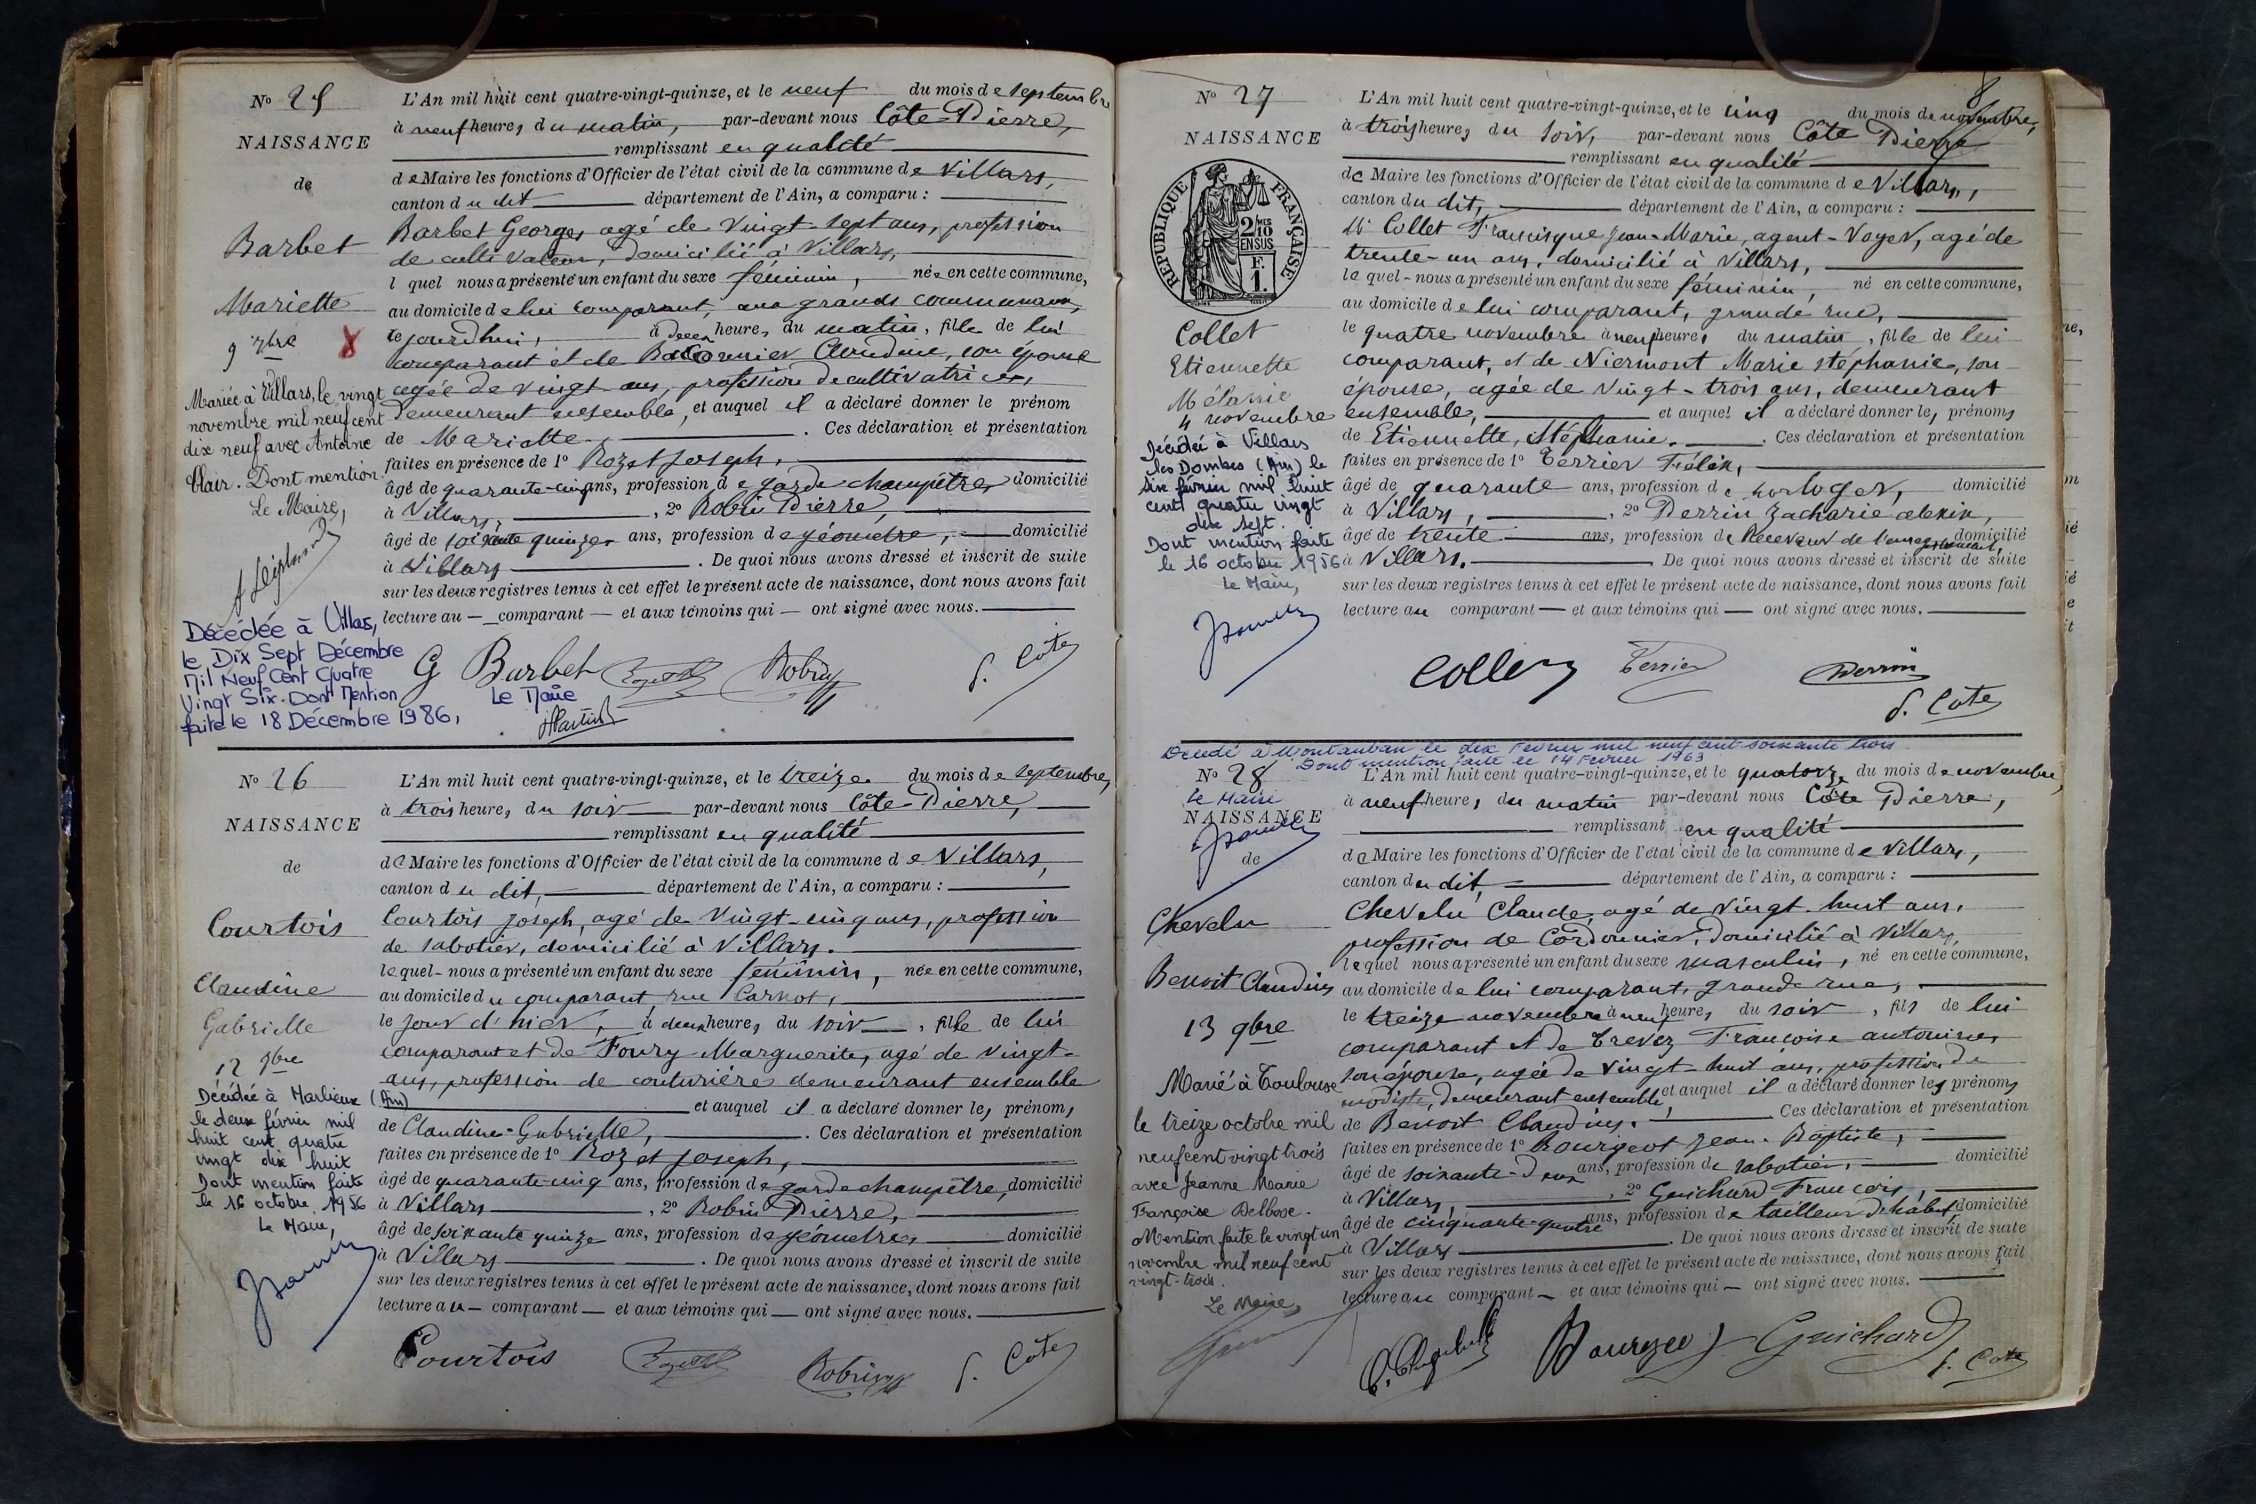 N° 25
NAISSANCE
de
Barbet
Mariette
9 7bre
Mariée à Villars, le vingt
novembre mil neuf cent
dix neuf avec Antoine
Clair. Dont mention.
Le Maire,
Décédée à Villars,
le Dix Sept Décembre
Mil Neuf Cent Quatre
Vingt Six. Dont Mention
faite le 18 Décembre 1986,
Le Maire
L'An mil huit cent quatre-vingt-quinze, et le neuf du mois de septembre
à neuf heures du matin, par-devant nous Côte Pierre,
remplissant en qualité
de Maire les fonctions d'Officier de l'état civil de la commune de Villars,
canton du dit département de l'Ain, a comparu :
Barbet Georges agé de vingt-sept ans, profession
de cultivateur, domicilié à Villars,
l quel nous a présenté un enfant du sexe féminin, née en cette commune,
au domicile de lui comparant, aux grands communaux,
ce jourd'hui, à deux heures du matin, fille de lui
comparant et de Claudine, son épouse
agée de vingt ans, profession de cultivatrice,
demeurant ensemble, et auquel il a déclaré donner le prénom
de Mariette. Ces déclaration et présentation
faites en présence de 1° Rozet Joseph,
âgé de quarante-cinq ans, profession de garde champêtre, domicilié
à Villars, 2° Robin Pierre,
âgé de soixante quinze ans, profession de géomètre, domicilié
à Villars. De quoi nous avons dressé et inscrit de suite
sur les deux registres tenus à cet effet le présent acte de naissance, dont nous avons fait
lecture au comparant et aux témoins qui ont signé avec nous.
G Barbet Robin P. Côte
N° 26
NAISSANCE
de
Courtois
Claudine
Gabrielle
12 9bre
Décédée à Marlieux (Ain)
le deux février mil
huit cent quatre
vingt dix huit
Dont mention faite
le 16 octobre 1956
Le Maire,
L'An mil huit cent quatre-vingt-quinze, et le treize du mois de septembre,
à trois heures du soir par-devant nous Côte Pierre,
remplissant en qualité
de Maire les fonctions d'Officier de l'état civil de la commune de Villars,
canton du dit, département de l'Ain, a comparu :
Courtois Joseph, agé de vingt-cinq ans, profession
de sabotier, domicilié à Villars.
lequel nous a présenté un enfant du sexe féminin, née en cette commune,
au domicile du comparant, rue Carnot,
le jour d'hier, à deux heures du soir, fille de lui
comparant et de Foury Marguerite, agé de vingt-
ans, profession de couturière demeurant ensemble
et auquel il a déclaré donner les prénoms
de Claudine-Gabrielle, Ces déclaration et présentation
faites en présence de 1° Rozet Joseph,
âgé de quarante-cinq ans, profession de garde champêtre, domicilié
à Villars, 2° Robin Pierre,
âgé de soixante quinze ans, profession de géomètre, domicilié
à Villars. De quoi nous avons dressé et inscrit de suite
sur les deux registres tenus à cet effet le présent acte de naissance, dont nous avons fait
lecture au comparant et aux témoins qui ont signé avec nous.
Courtois Robin P. Côte
8
N° 27
NAISSANCE
RÉPUBLIQUE FRANÇAISE
2/10 MES
EN SUS
F.
1.
Collet
Etiennette
Mélanie
4 novembre
Décédée à Villars
les Dombes (Ain) le
six février mil huit
cent quatre vingt
dix sept.
Dont mention faite
le 16 octobre 1956
Le Maire,
L'An mil huit cent quatre-vingt-quinze, et le cinq du mois de novembre,
à trois heures du soir, par-devant nous Côte Pierre
remplissant en qualité
de Maire les fonctions d'Officier de l'état civil de la commune de Villars,
canton du dit, département de l'Ain, a comparu :
Mr Collet Francisque Jean-Marie, agent-Voyer, agé de
trente-un ans, domicilié à Villars,
lequel nous a présenté un enfant du sexe féminin, né en cette commune,
au domicile de lui comparant, grande rue,
le quatre novembre à neuf heures du matin, fille de lui
comparant, et de Niermont Marie Stéphanie, son
épouse, agée de vingt-trois ans, demeurant
ensemble, et auquel il a déclaré donner les prénoms
de Etiennette, Stéphanie. Ces déclaration et présentation
faites en présence de 1° Terrier Félix,
âgé de quarante ans, profession de horloger, domicilié
à Villars, 2° Perrin Zacharie Alexis,
âgé de trente ans, profession de Receveur de l'enregistrement, domicilié
à Villars. De quoi nous avons dressé et inscrit de suite
sur les deux registres tenus à cet effet le présent acte de naissance, dont nous avons fait
lecture au comparant et aux témoins qui ont signé avec nous.
Collet Terrier Perrin
P. Côte
Décédé à Montauban le dix Février mil neuf cent soixante trois
Dont mention faite le 14 Février 1963
Le Maire
N° 28
NAISSANCE
de
Chevelu
Benoit Claudius
13 9bre
Marié à Toulouse
le treize octobre mil
neuf cent vingt trois
avec Jeanne Marie
Françoise Delbosc.
Mention faite le vingt un
novembre mil neuf cent
vingt-trois.
Le Maire,
L'An mil huit cent quatre-vingt-quinze, et le quatorze du mois de novembre,
à neuf heures du matin par-devant nous Côte Pierre,
remplissant en qualité
de Maire les fonctions d'Officier de l'état civil de la commune de Villars,
canton du dit, département de l'Ain, a comparu :
Chevelu Claude, agé de vingt-huit ans,
profession de cordonnier, domicilié à Villars,
lequel nous a présenté un enfant du sexe masculin, né en cette commune,
au domicile de lui comparant, grande rue,
le treize novembre à neuf heures du soir, fils de lui
comparant et de Trevez Françoise Antoinine,
son épouse, agée de vingt-huit ans, profession de
modiste, demeurant ensemble, et auquel il a déclaré donner les prénoms
de Benoit Claudius. Ces déclaration et présentation
faites en présence de 1° Bourgeot Jean-Baptiste,
âgé de soixante-deux ans, profession de sabotier, domicilié
à Villars, 2° Guichard François,
âgé de cinquante-quatre ans, profession de tailleur d'habits, domicilié
à Villars. De quoi nous avons dressé et inscrit de suite
sur les deux registres tenus à cet effet le présent acte de naissance, dont nous avons fait
lecture au comparant et aux témoins qui ont signé avec nous.
Bourgeot Guichard P. Côte